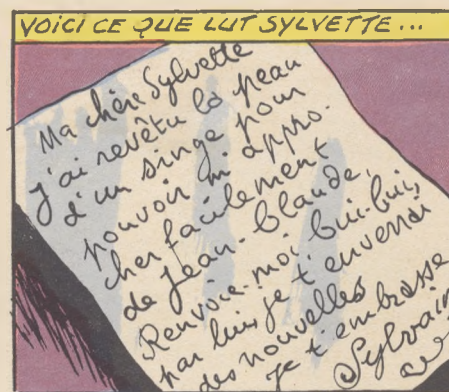 VOICI CE QUE LUT SYLVETTE...
Ma chère Sylvette
j'ai revêtu la peau
d'un singe pour
pouvoir m'appro-
cher facilement
de Jean-Claude,
Renvoie-moi bui-bui,
par lui, je t'enverrai
des nouvelles
je t'embrasse
Sylvain